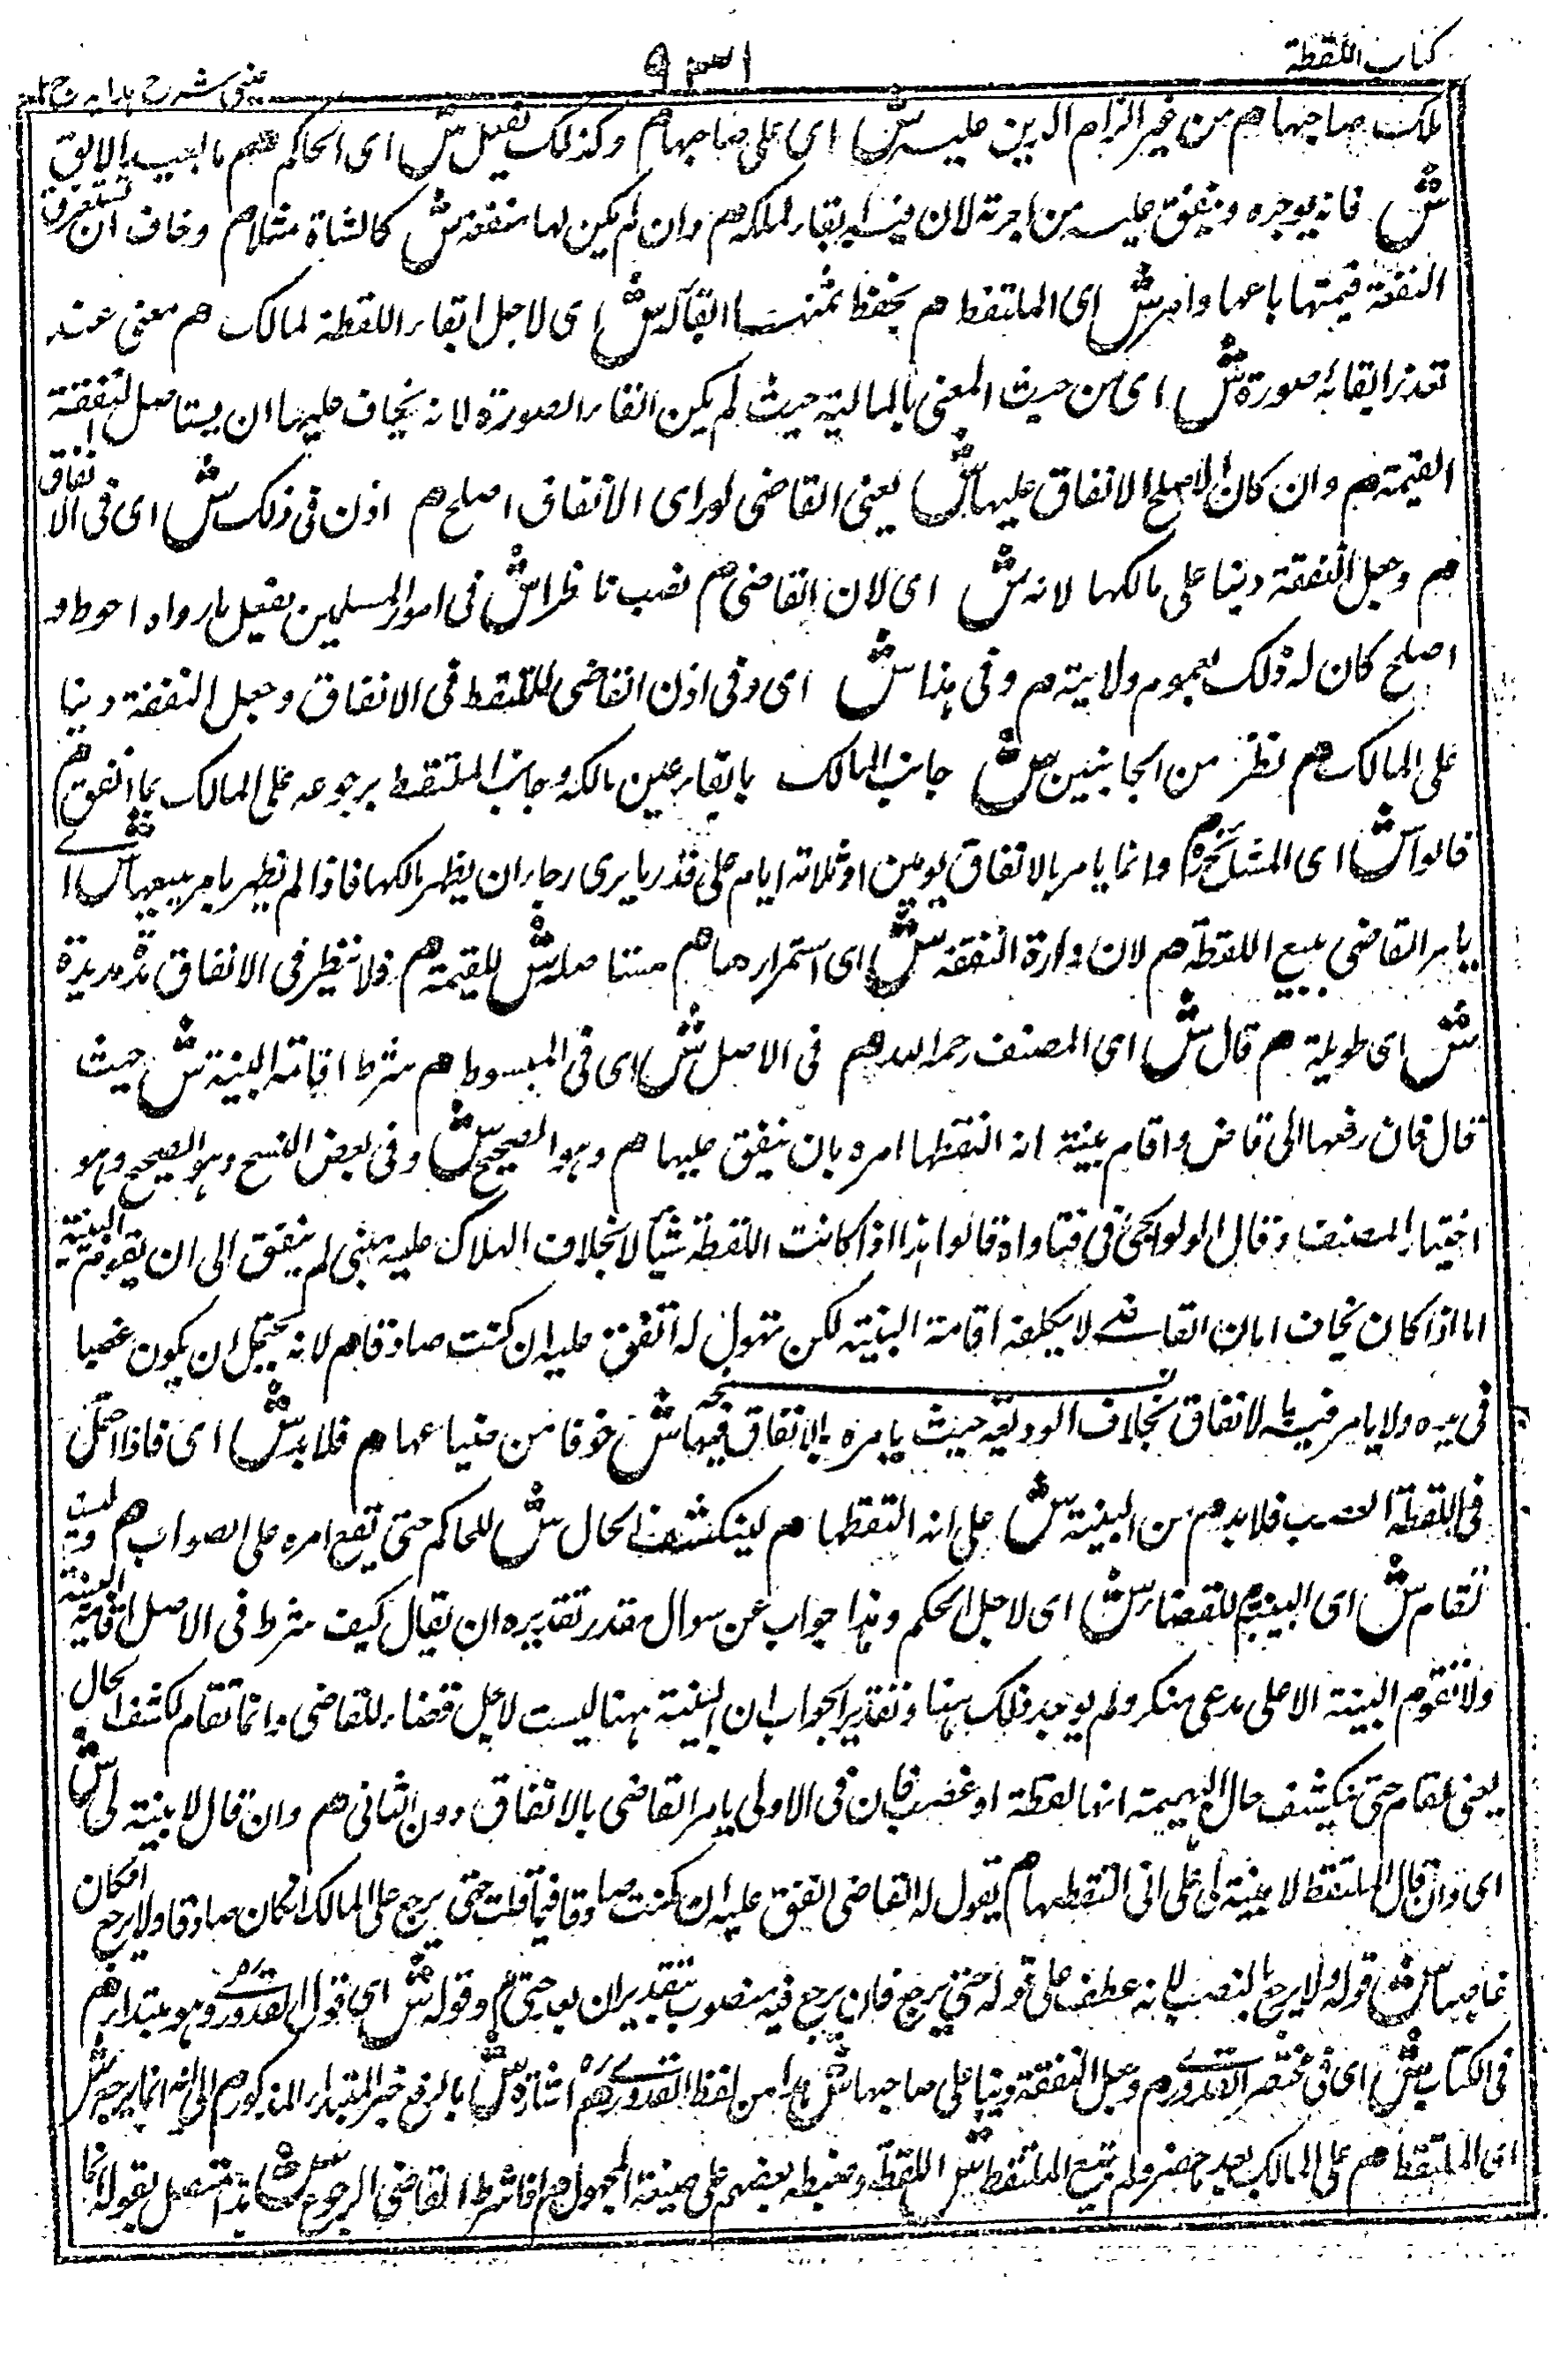 كتاب اللقطة
٩٣١
عینی شرح ہدایہ ج
ملك صاحبها هم من غير الزام الدين عليه ش اى على صاحبها هم وكذلك تفعل ش اى الحاكم هم بالعبد الابق
ش فانه يوجره وينفق عليه من اجرته لان فيه ابقاء لملكه هم وان لم يكن لها منفعة ش كالشاة مثلا هم وخاف ان تستغرق
النفقة قيمتها باعها وامر ش اى الملتقط هم بحفظ ثمنها ابقاء له ش اى لاجل ابقاء اللقطة لمالك هم معنى عند
تعذر ابقائه صورة ش اى من حيث المعنى بالمالية حيث لم يكن ابقاء الصورة لانه يخاف عليها ان يستاصل النفقة
القيمة هم وان كان الاصلح الانفاق عليها ش يعنى القاضى لو راى الانفاق اصلح هم اذن فى ذلك ش اى فى الانفاق
هم وجعل النفقة دينا على مالكها لانه ش اى لان القاضى هم نصب ناظرا ش فى امور المسلمين يفعل ما رواه احوط و
اصلح كان له ذلك لعموم ولايته هم وفى هذا ش اى وفى اذن القاضى للملتقط فى الانفاق وجعل النفقة دينا
على المالك هم نظر من الجانبين ش جانب المالك بابقاء عين مالكه وجانب الملتقط برجوعه على المالك بما انفق هم
قالوا ش اى المشائخ هم وانما يامر بالانفاق يومين او ثلاثة ايام على قدر ما يرى رجاء ان يظهر مالكها فاذا لم يظهر يامر ببيعها ش اى
يامر القاضى ببيع اللقطة هم لان دارة النفقة ش اى استمرارها هم مستاصلة ش للقيمة هم فلا نظر فى الانفاق مدة مديدة
ش اى طويلة هم قال ش اى المصنف رحمه الله هم فى الاصل ش اى فى المبسوط هم شرط اقامة البينة ش حيث
قال فان رفعها الى قاض واقام بينة انه التقطها امره بان ينفق عليها هم وهو الصحيح ش وفى بعض النسخ وهو الصحيح وهو
اختيار المصنف وقال الولوالجى فى فتاواه قالوا هذا اذا كانت اللقطة شيا لا يخاف الهلاك عليه متى لم ينفق الى ان يقوم البينة
اما اذا كان يخاف ابان القاضى لا يكلفه اقامة البينة لكن يقول له انفق عليه ان كنت صادقا هم لانه يحتمل ان يكون غصبا
فى يده ولا يامر فيه بالانفاق بخلاف الوديعة حيث يامره بالانفاق فيها ش خوفا من ضياعها هم فلا بد ش اى فاذا احتمل
فى اللقطة الغصب فلا بد هم من البينة ش على انه التقطها هم لينكشف الحال ش للحاكم حتى يقع امره على الصواب هم وليست
تقام ش اى البينة هم للقضاء ش اى لاجل الحكم وهذا جواب عن سوال مقدر تقديره ان يقال كيف شرط فى الاصل اقامة البينة
ولا تقوم البينة الا على مدعى منكر ولم يوجد ذلك ههنا وتقدير الجواب ان البينة ههنا ليست لاجل قضاء القاضى وانما تقام لكشف الحال
يعنى تقام حتى ينكشف حال البهيمة انها لقطة او غصب فان فى الاولى يامر القاضى بالانفاق دون الثانى هم وان قال لا بينة لى ش
اى وان قال الملتقط لا بينة لى على انى التقطها هم يقول له القاضى انفق عليه ان كنت صادقا فيما قلت حتى يرجع على المالك ان كان صادقا ولا يرجع ان كان
غاصبا ش قوله ولا يرجع بالنصب لانه عطف على قوله حتى يرجع فان يرجع فيه منصوب بتقدير ان بعد حتى هم وقوله ش اى قول القدورى وهو مبتدا هم
فى الكتاب ش اى فى مختصر القدورى هم وجعل النفقة دينا على صاحبها ش هذا من لفظ القدورى هم اشارة ش بالرفع خبر المبتدا المذكور هم الى انه انما يرجع ش
اى الملتقط هم على المالك بعد ما حضر ولم تبع الملتقط ش اللقطة وضبطه بعضهم على صيغة المجهول هم اذا شرط القاضى الرجوع ش هذا متصل بقوله انما